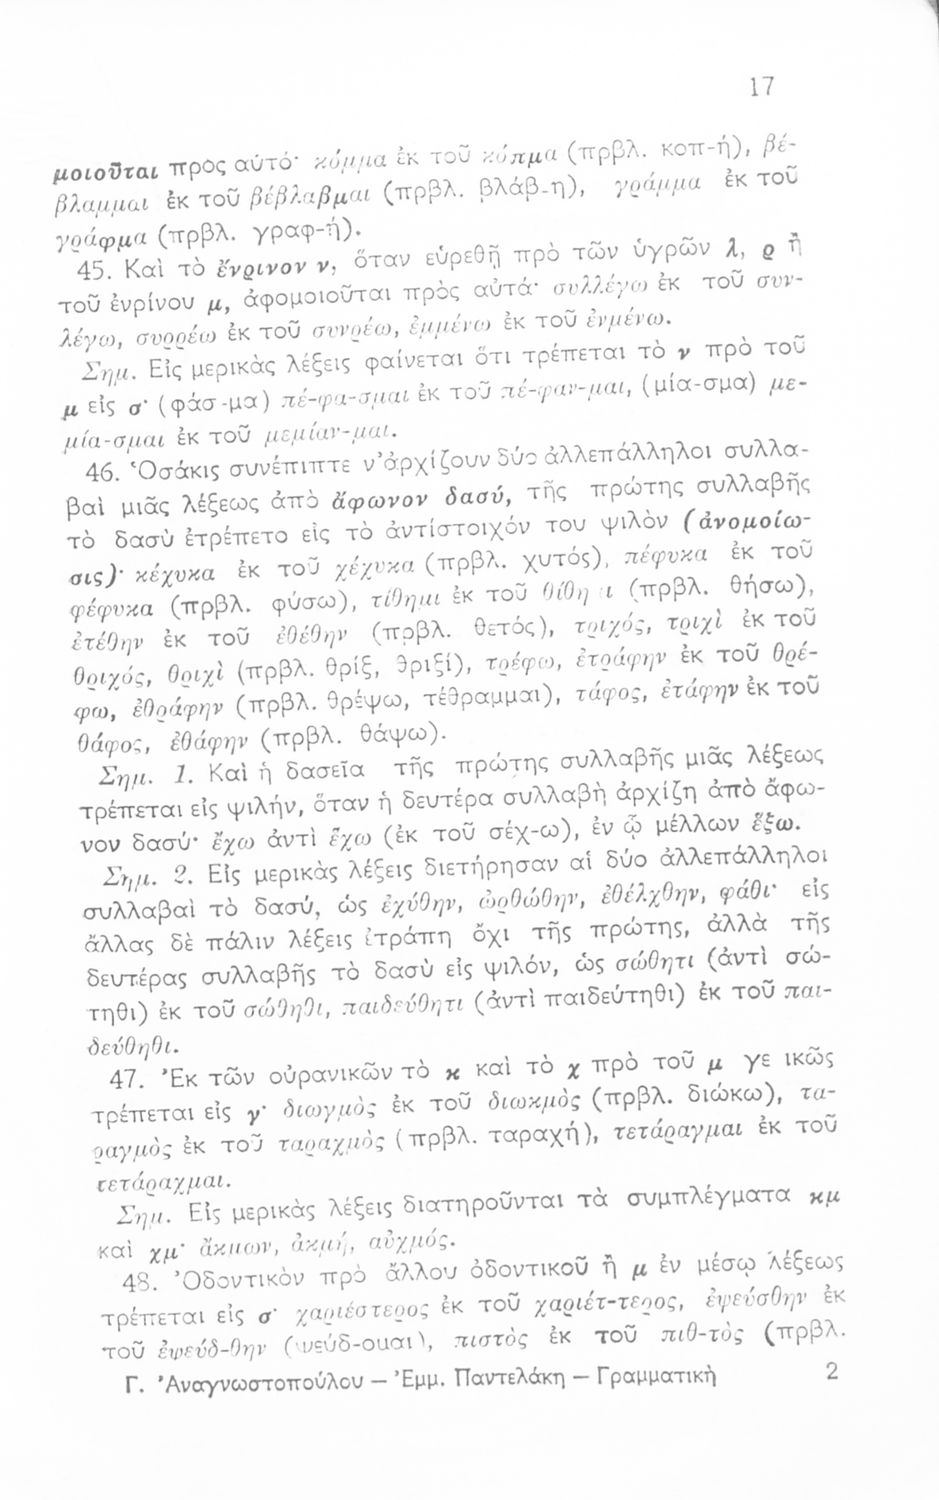 17
μοιοῦται πρὸς αὐτό· κόμμα ἐκ τοῦ κόπμα (πρβλ. κοπ-ή), βέ-
βλαμμαι ἐκ τοῦ βέβλαβμαι (πρβλ. βλάβ-η), γράμμα ἐκ τοῦ
γράφμα (πρβλ. γραφ-ή).
45. Καὶ τὸ ἔνρινον ν, ὅταν εὑρεθῇ πρὸ τῶν ὑγρῶν λ, ρ ἢ
τοῦ ἐνρίνου μ, ἀφομοιοῦται πρὸς αὐτά· συλλέγω ἐκ τοῦ συν-
λέγω, συρρέω ἐκ τοῦ συνρέω, ἐμμένω ἐκ τοῦ ἐνμένω.
Σημ. Εἰς μερικὰς λέξεις φαίνεται ὅτι τρέπεται τὸ ν πρὸ τοῦ
μ εἰς σ· (φάσ-μα) πέ-φα-σμαι ἐκ τοῦ πέ-φαν-μαι, (μία-σμα) με-
μία-σμαι ἐκ τοῦ μεμίαν-μαι.
46. Ὁσάκις συνέπιπτε ν᾽ἀρχίζουν δύο ἀλλεπάλληλοι συλλα-
βαὶ μιᾶς λέξεως ἀπὸ ἄφωνον δασύ, τῆς πρώτης συλλαβῆς
τὸ δασὺ ἐτρέπετο εἰς τὸ ἀντίστοιχόν του ψιλὸν (ἀνομοίω-
σις)· κέχυκα ἐκ τοῦ χέχυκα (πρβλ. χυτός), πέφυκα ἐκ τοῦ
φέφυκα (πρβλ. φύσω), τίθημι ἐκ τοῦ θίθη ι (πρβλ. θήσω),
ἐτέθην ἐκ τοῦ ἐθέθην (πρβλ. θετός), τριχός, τριχὶ ἐκ τοῦ
θριχός, θριχὶ (πρβλ. θρίξ, θριξί), τρέφω, ἐτράφην ἐκ τοῦ θρέ-
φω, ἐθράφην (πρβλ. θρέψω, τέθραμμαι), τάφος, ἐτάφην ἐκ τοῦ
θάφος, ἐθάφην (πρβλ. θάψω).
Σημ. 1. Καὶ ἡ δασεῖα τῆς πρώτης συλλαβῆς μιᾶς λέξεως
τρέπεται εἰς ψιλήν, ὅταν ἡ δευτέρα συλλαβὴ ἀρχίζη ἀπὸ ἄφω-
νον δασύ· ἔχω ἀντὶ ἕχω (ἐκ τοῦ σέχ-ω), ἐν ᾧ μέλλων ἕξω.
Σημ. 2. Εἰς μερικὰς λέξεις διετήρησαν αἱ δύο ἀλλεπάλληλοι
συλλαβαὶ τὸ δασύ, ὡς ἐχύθην, ὠρθώθην, ἐθέλχθην, φάθι· εἰς
ἄλλας δὲ πάλιν λέξεις ἐτράπη ὄχι τῆς πρώτης, ἀλλὰ τῆς
δευτέρας συλλαβῆς τὸ δασὺ εἰς ψιλόν, ὡς σώθητι (ἀντὶ σώ-
τηθι) ἐκ τοῦ σώθηθι, παιδεύθητι (ἀντὶ παιδεύτηθι) ἐκ τοῦ παι-
δεύθηθι.
47. Ἐκ τῶν οὐρανικῶν τὸ κ καὶ τὸ χ πρὸ τοῦ μ γε ικῶς
τρέπεται εἰς γ· διωγμὸς ἐκ τοῦ διωκμὸς (πρβλ. διώκω), τα-
ραγμὸς ἐκ τοῦ ταραχμὸς (πρβλ. ταραχή), τετάραγμαι ἐκ τοῦ
τετάραχμαι.
Σημ. Εἰς μερικὰς λέξεις διατηροῦνται τὰ συμπλέγματα κμ
καὶ χμ· ἄκμων, ἀκμή, αὐχμός.
48. Ὀδοντικὸν πρὸ ἄλλου ὀδοντικοῦ ἢ μ ἐν μέσῳ λέξεως
τρέπεται εἰς σ· χαριέστερος ἐκ τοῦ χαριέτ-τερος, ἐψεύσθην ἐκ
τοῦ ἐψεύδ-θην (ψεύδ-ομαι), πιστὸς ἐκ τοῦ πιθ-τὸς (πρβλ.
Γ. Ἀναγνωστοπούλου – Ἐμμ. Παντελάκη – Γραμματικὴ 2